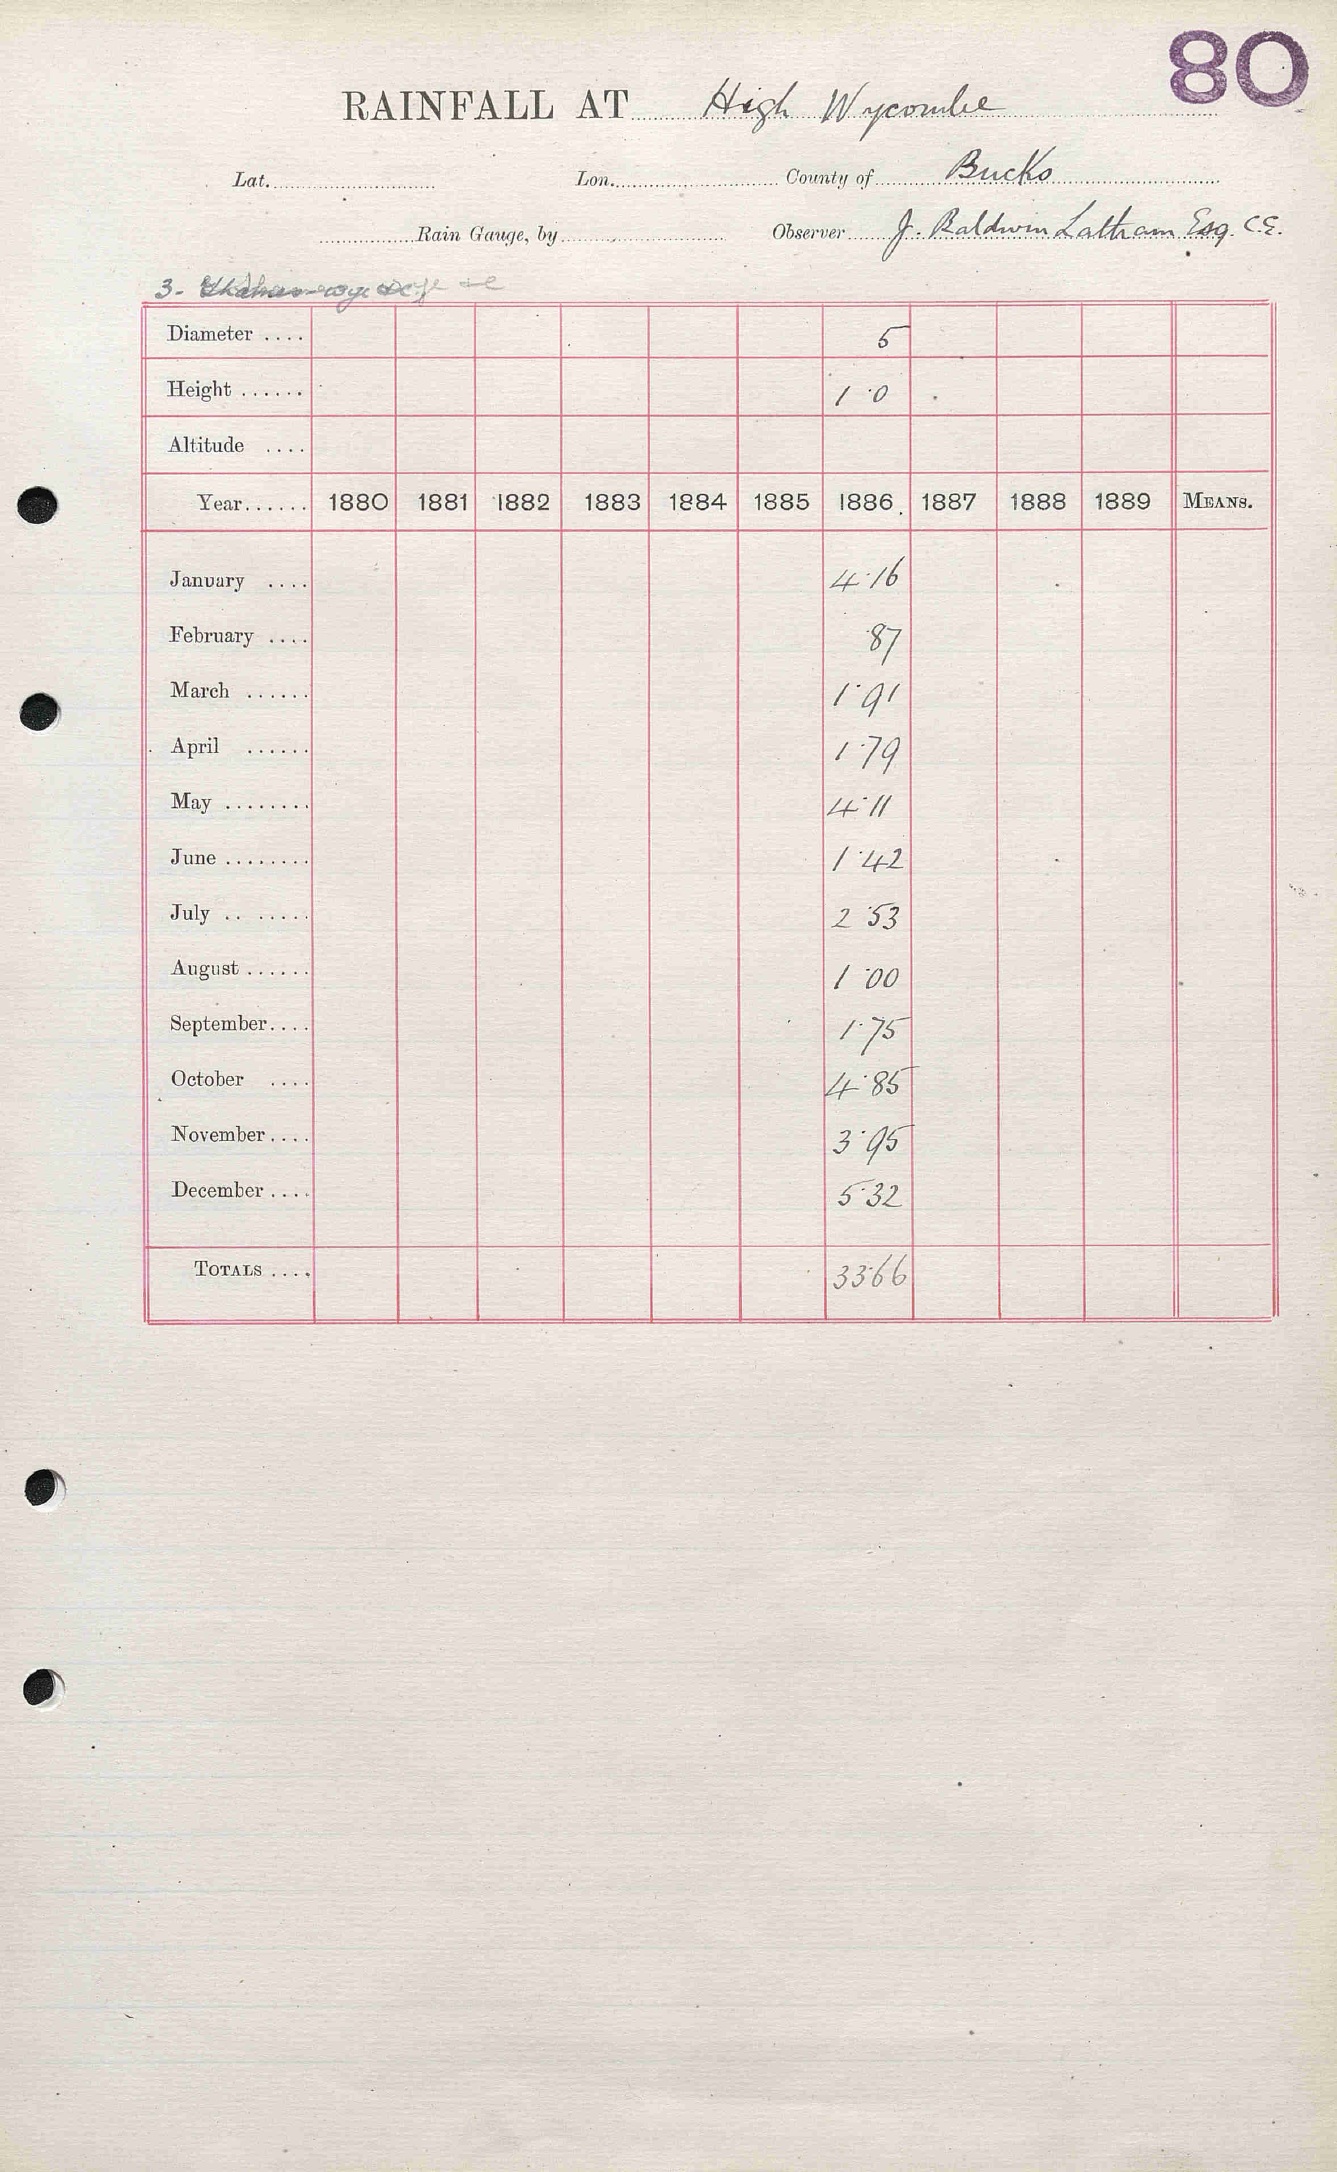 80
RAINFALL AT High Wycombe
Lat. Lon. County of Bucks
Rain Gauge, by Observer J. Baldwin Latham Esq. C.E.
3.
Diameter .... 5
Height ...... 1 ·0
Altitude ....
Year...... 1880 1881 1882 1883 1884 1885 1886 1887 1888 1889 MEANS.
January .... 4·16
February .... ·87
March ...... 1·91
April ...... 1·79
May ........ 4·11
June ........ 1·42
July .. ..... 2·53
August ...... 1·00
September.... 1·75
October .... 4·85
November.... 3·95
December.... 5·32
TOTALS .... 33·66